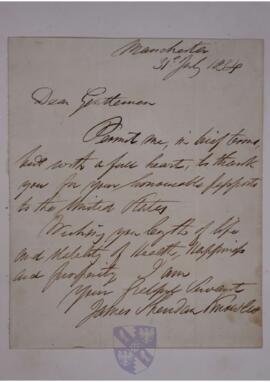 Manchester
31st July 1834
Dear Gentlemen
Permit me, in brief terms,
but with a full heart, to thank
you for your honourable
to the United States
Wishing you lengths of life
and of Health, Happiness
and prosperity I am
Your Servant
James Sheridan Knowles